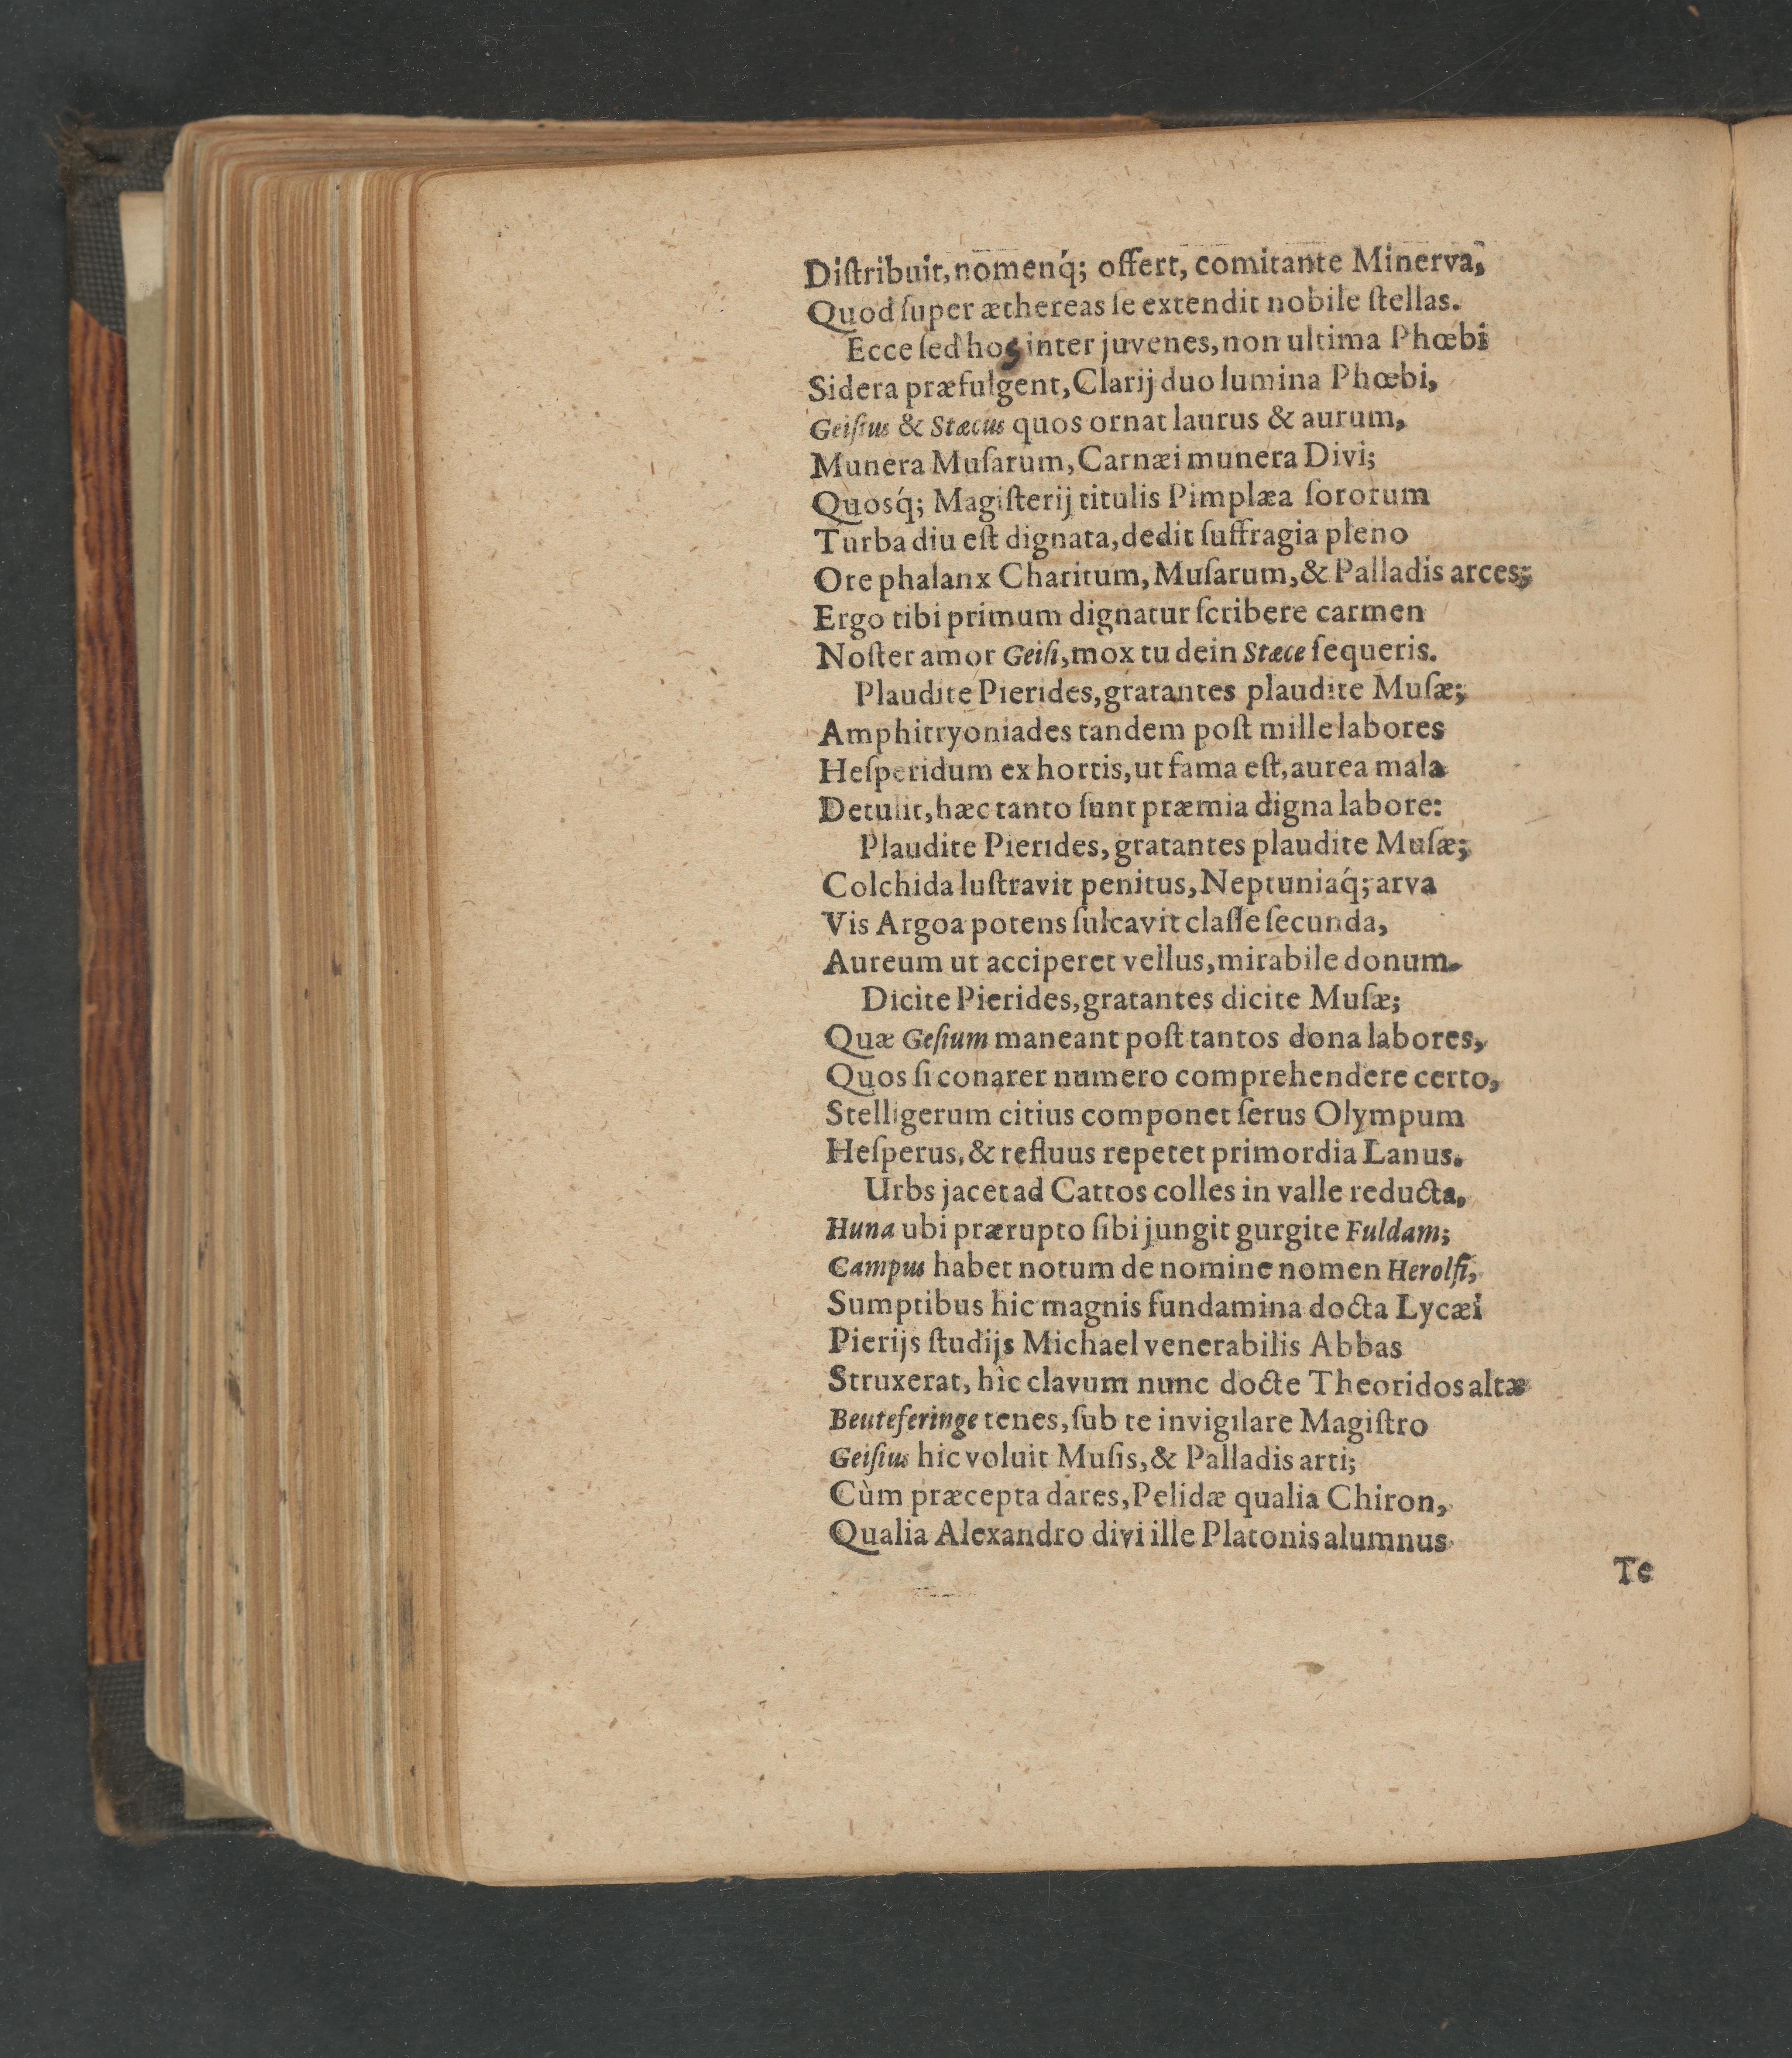 Diſtribuit, nomenq́; offert, comitante Minervâ,
Quod ſuper æthereas ſe extendit nobile ſtellas.
Ecce ſed hos inter juvenes, non ultima Phœbi
Sidera præfulgent, Clarij duo lumina Phœbi,
Geiſius & Stæcus quos ornat laurus & aurum,
Munera Muſarum, Carnæi munera Divi;
Quosq́; Magiſterij titulis Pimplæa ſororum
Turba diu eſt dignata, dedit ſuffragia pleno
Ore phalanx Charitum, Muſarum, & Palladis arces;
Ergo tibi primum dignatur ſcribere carmen
Noſter amor Geiſi, mox tu dein Stæce ſequeris.
Plaudite Pierides, gratantes plaudite Muſæ;
Amphitryoniades tandem poſt mille labores
Heſperidum ex hortis, ut fama eſt, aurea mala
Detulit, hæc tanto ſunt præmia digna labore:
Plaudite Pierides, gratantes plaudite Muſæ;
Colchida luſtravit penitus, Neptuniaq́; arva
Vis Argoa potens ſulcavit claſſe ſecunda,
Aureum ut acciperet vellus, mirabile donum.
Dicite Pierides, gratantes dicite Muſæ;
Quæ Geſium maneant poſt tantos dona labores,
Quos ſi conarer numero comprehendere certo,
Stelligerum citius componet ſerus Olympum
Heſperus, & refluus repetet primordia Lanus.
Urbs jacet ad Cattos colles in valle reducta,
Huna ubi prærupto ſibi jungit gurgite Fuldam;
Campus habet notum de nomine nomen Herolfi,
Sumptibus hic magnis fundamina docta Lycæi
Pierijs ſtudijs Michael venerabilis Abbas
Struxerat, hìc clavum nunc docte Theoridos altæ
Beuteferinge tenes, ſub te invigilare Magiſtro
Geiſius hic voluit Muſis, & Palladis arti;
Cùm præcepta dares, Pelidæ qualia Chiron,
Qualia Alexandro divi ille Platonis alumnus
Te